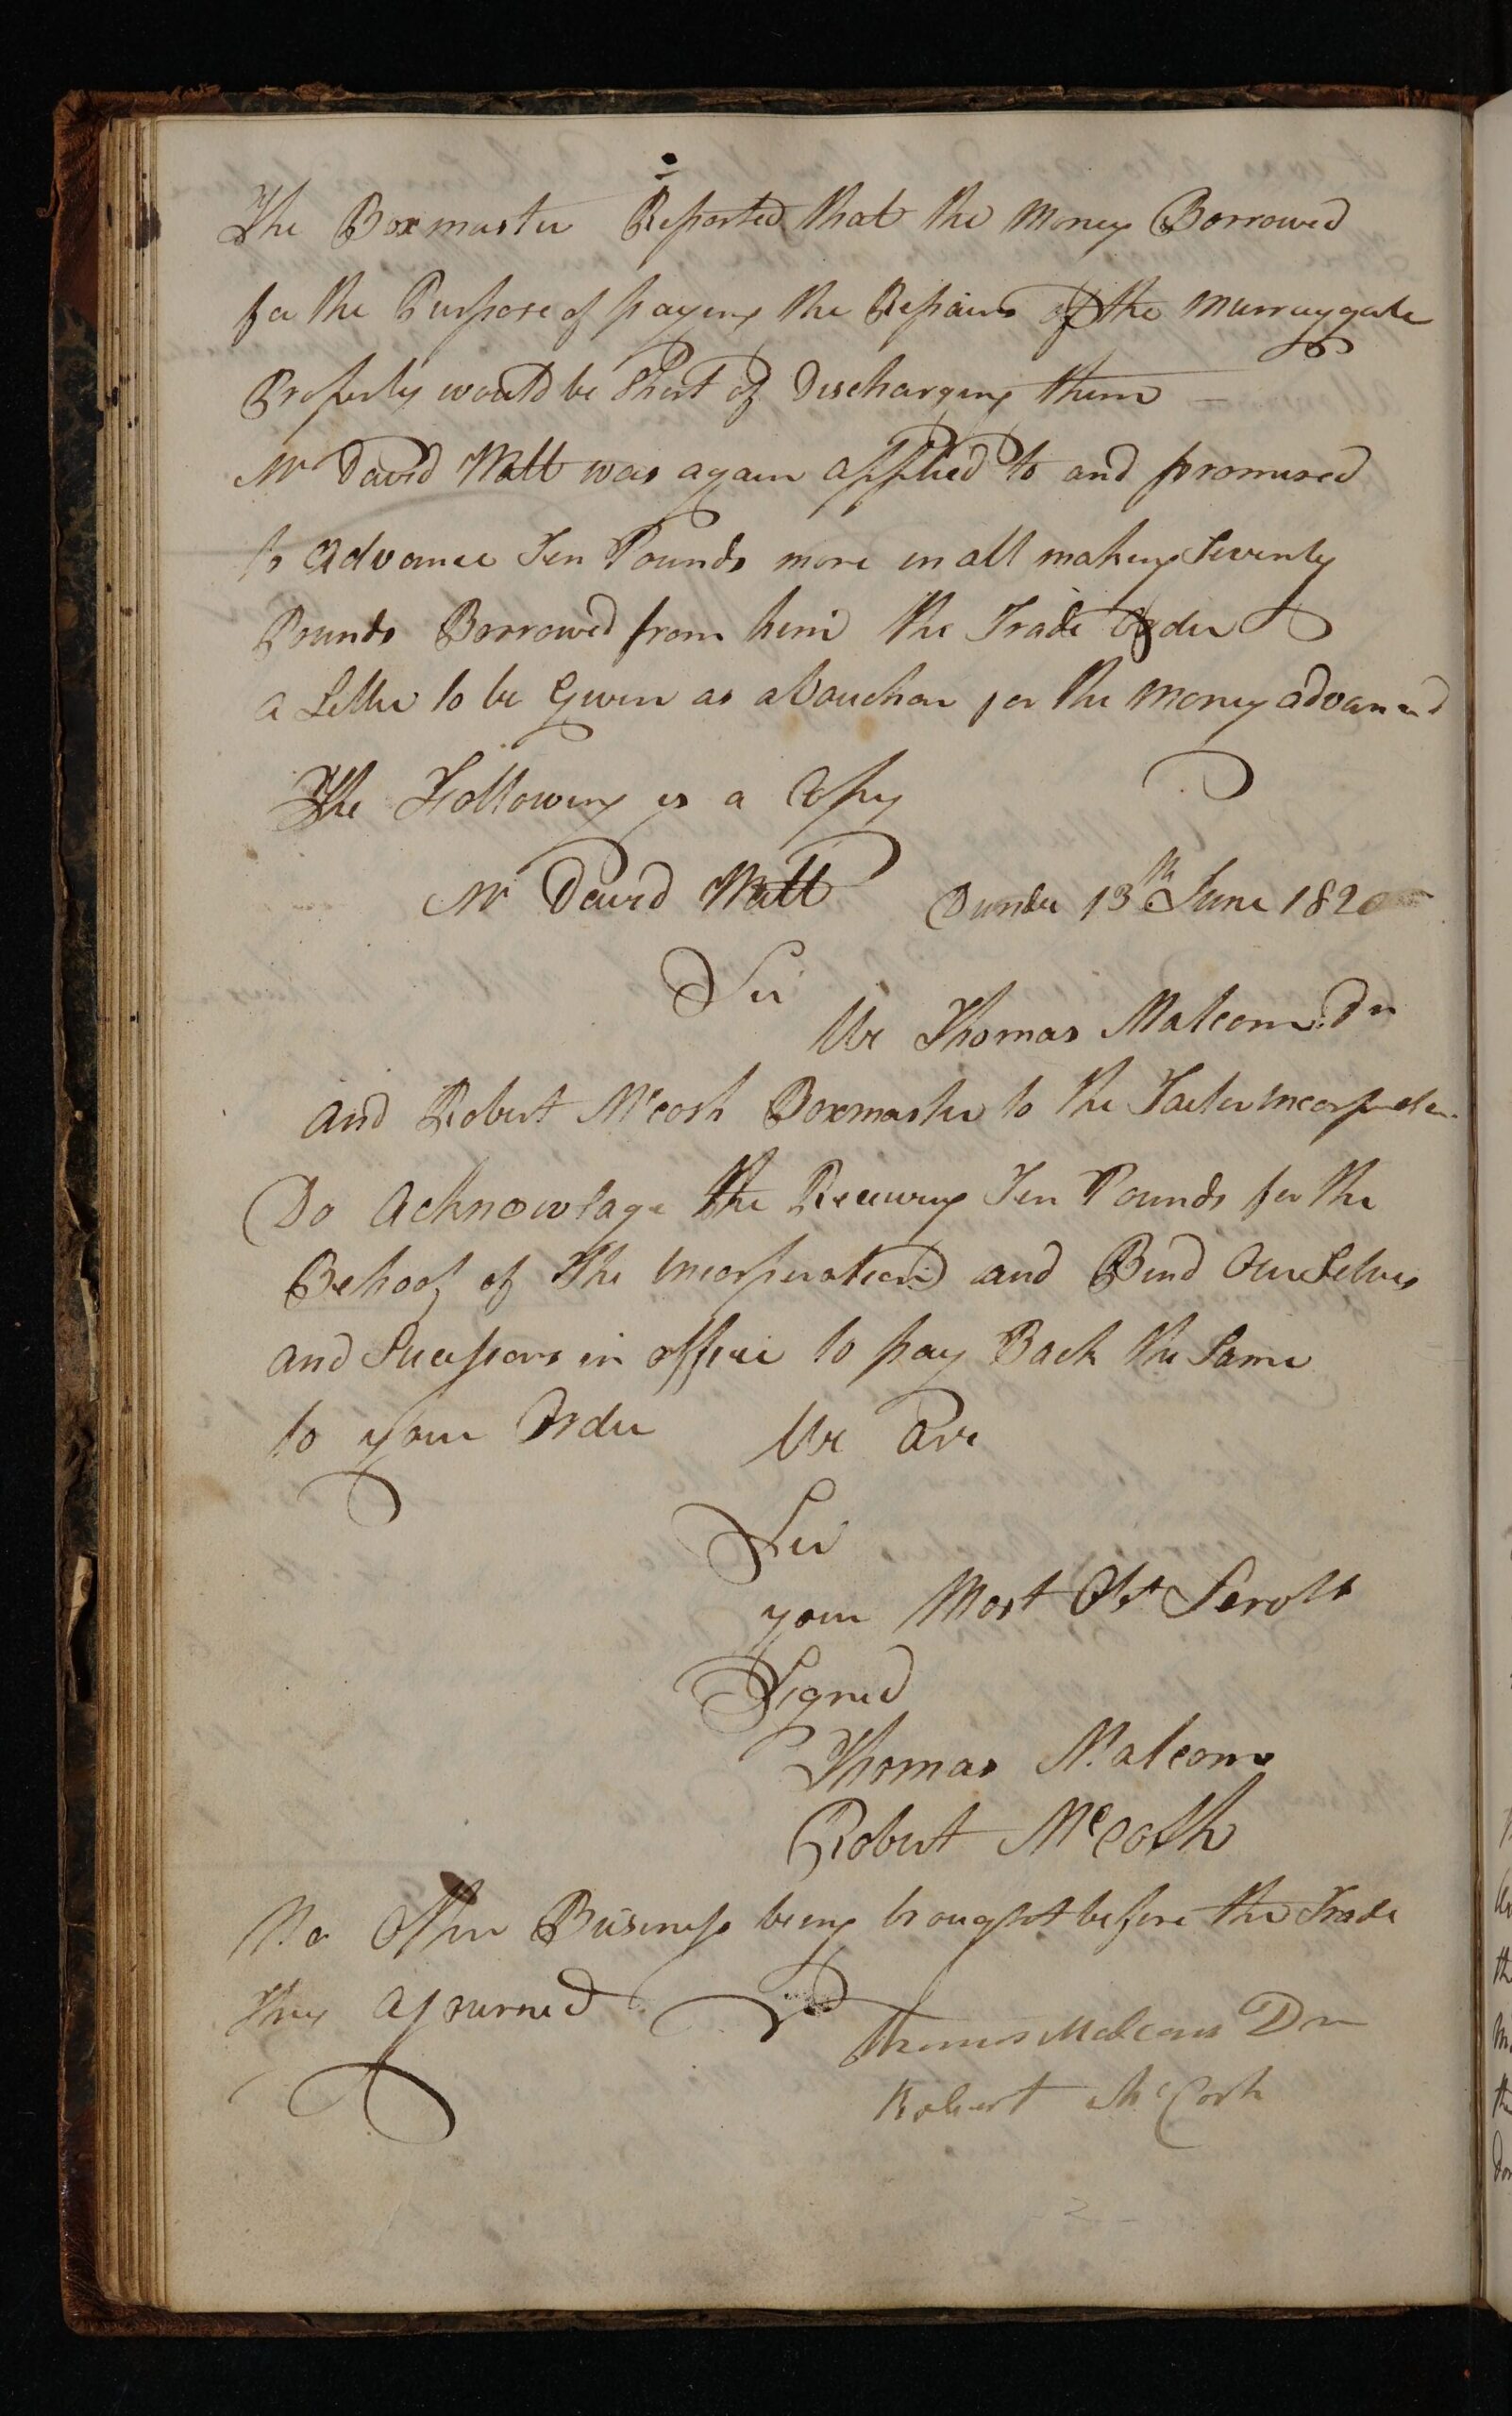 The Boxmaster Reported that the Money Borrowed
for the Purpose of paying the Repairs of the Murraygate
Property would be Short of Discharging them —
Mr David Watt was again applied to and promised
to Advance Ten Pounds more in all making Seventy
Pounds Borrowed from him the Trade Order
a Letter to be Given as a Vouchar for the Money advanced
The Following is a Copy
Mr David Watt Dundee 13th June 1820
Sir
We Thomas Malcom Dn
and Robert Mccosh Boxmaster to the
Do Acknowlage the Receiving Ten Pounds for the
Behoof of The Incorperation and Bind OurSelves
and Sucessors in office to pay Back the Same
to your Order We are
Sir
your Most Obt Servts
Signed
Thomas Malcom
Robert Mccosh
No Other Business being brought before the Trade
They Ajourned
Thomas Malcom Dn
Robert McCosh